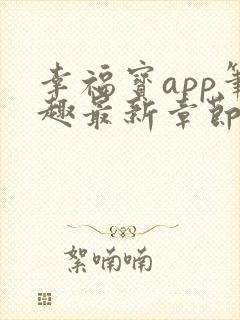 幸福宝app笔
趣最新章节
絮喃喃